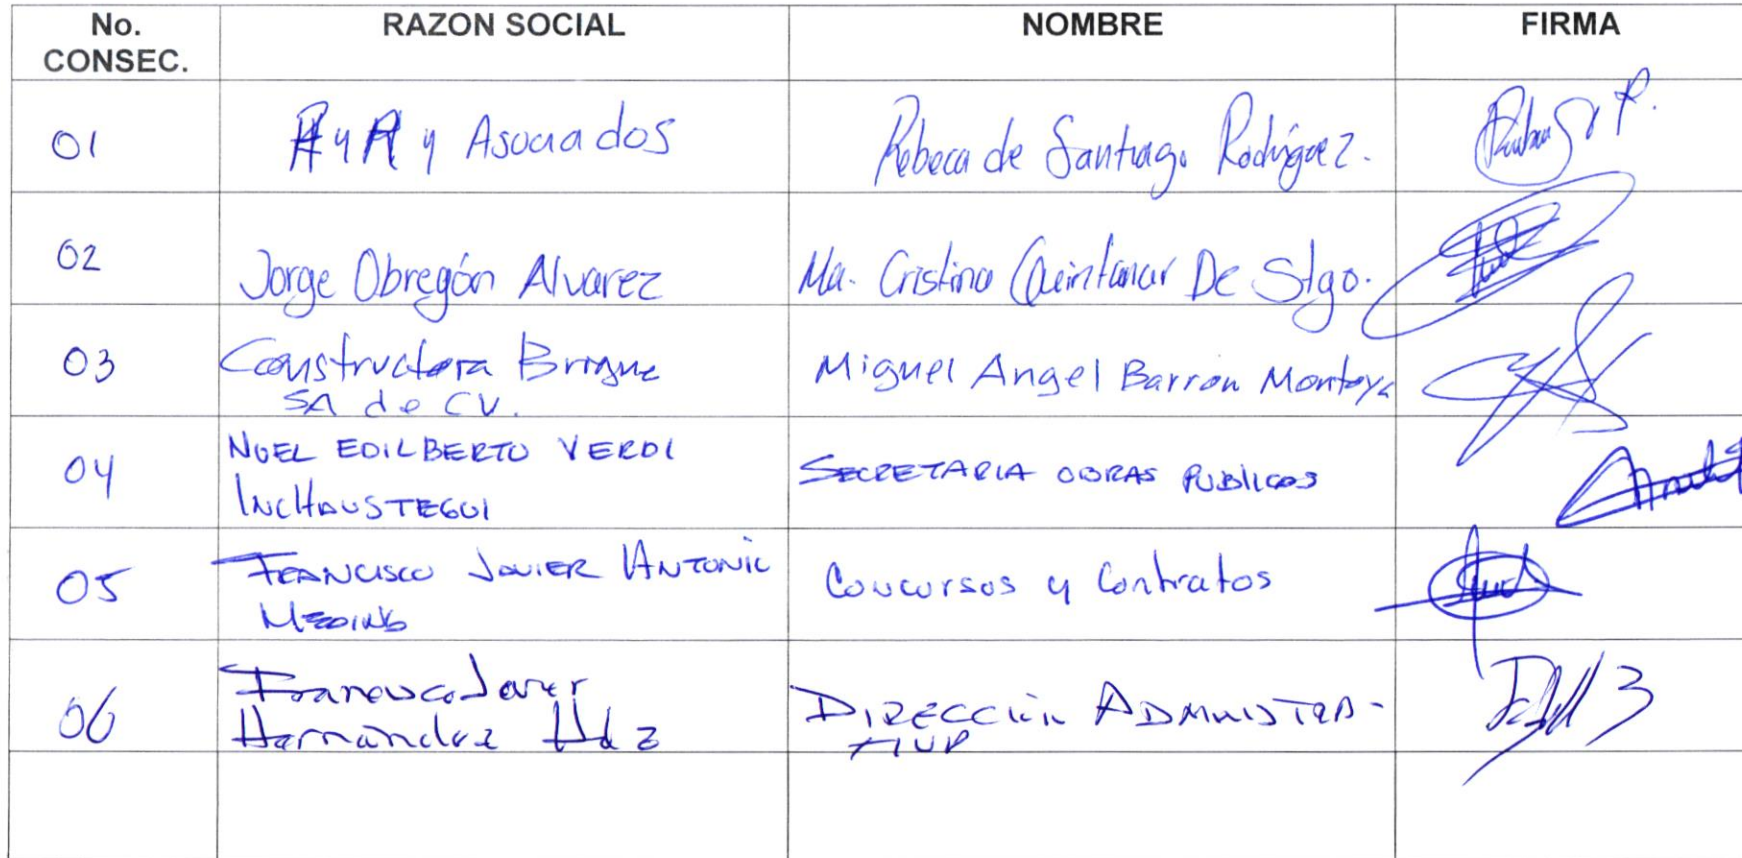 No. CONSEC. RAZON SOCIAL NOMBRE FIRMA
01 RyR y Asociados Rebeca de Santiago Rodríguez.
02 Jorge Obregón Alvarez Ma. Cristina Quintanar De Stgo.
03 Constructora SA de CV. Miguel Angel Barrón Montoya
04 NOEL EDILBERTO VERDI INCHAUSTEGUI SECRETARIA OBRAS PUBLICAS
05 FRANCISCO JAVIER ANTONIO MEDINA Concursos y Contratos
06 Francisco Javier Hernández Hdz DIRECCIÓN ADMINISTRA-TIVA